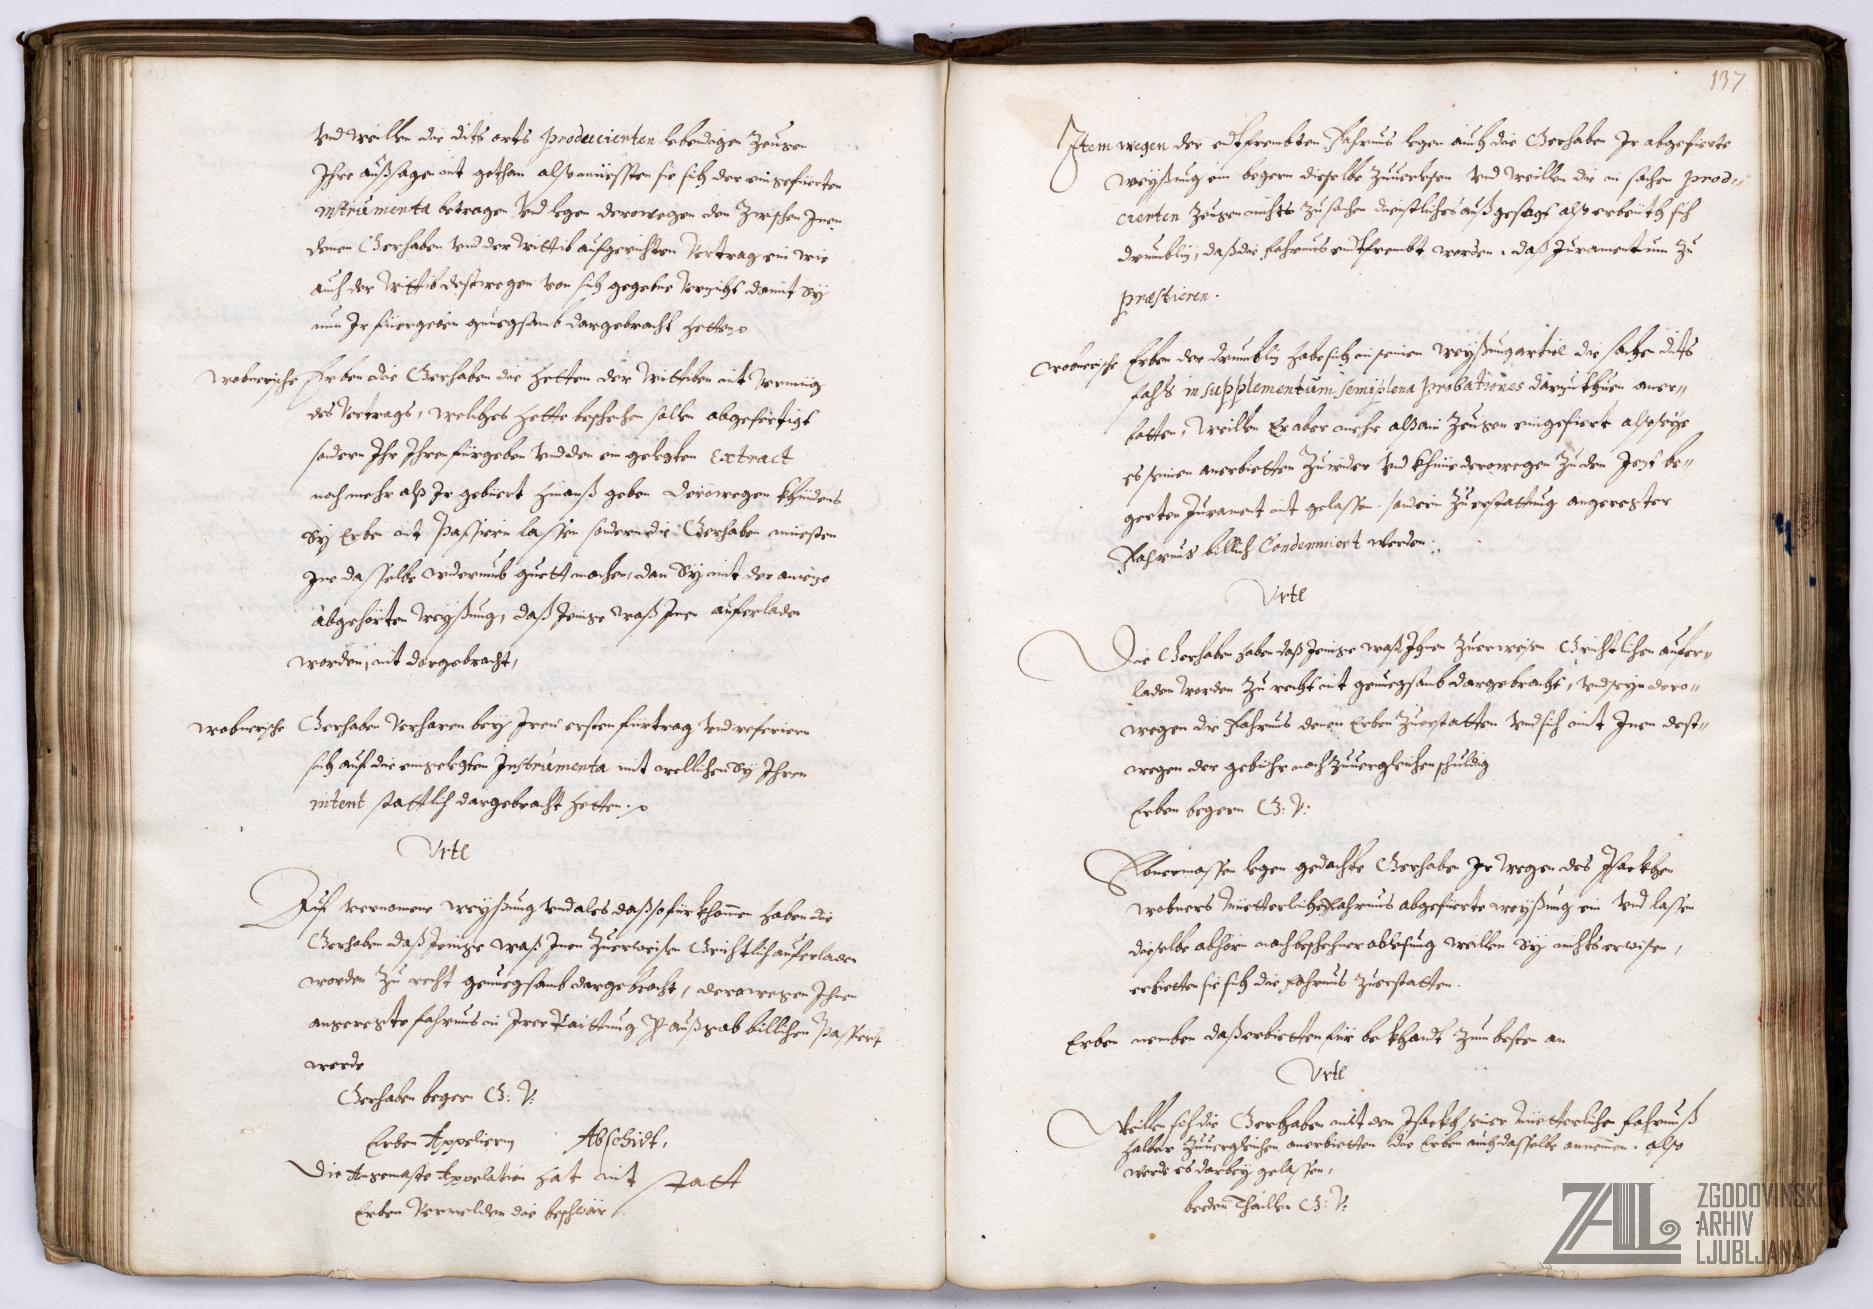 Vnd weillen die dits orts producierten lebendigen Zeugen
Ihre außsagen nit gethan also müessten sie sich der eingefierten
instrumenta betragen Vnd legen derowegen den Zwischen Inen
denen Gerhaben Vnd der Wittib aufgerichten Vertrag ein wie
auch der Wittib destwegen von sich gegebne Verzicht damit Sy
nun Ir fürgeben gnuegsamb dargebracht hetten
Wobnerische Erben die Gerhaben die hetten der Wittiben nit vermüg
des Vertrags, welliches hette beschehen sollen abgefertigt
sondern Ihr Ihren fürgeben Vnd den ein gelegten Extract
noch mehr als Ir gebüert hinauß geben derowegen khündens
Sy Erben nit Passiern lassen sondern die Gerhaben müesten
Ine dasselbe widerumb guett machen, dan Sy mit der anyezo
abgehörten Weysung, daß Jenige waß Inen auferladen
worden, nit dargebracht,
Wobnerische Gerhaben Verharen bey Iren ersten fürtrag Vnd referiern
sich auf die eingelegten Instrumenta mit wellichen Sy Ihren
intent stattlich dargebracht hetten.
Vrtl
Auf vernomene Weysung Vnd ales daß so fürkhomen haben die
Gerhaben daß Jenige waß Inen Zuerweisen Grichtlich auferladen
worden Zu recht genuegsamb dargebracht, derowegen Ihnen
angeregte fahrnus in Irer Raittung P außgab billichen Passiert
werde
Gerhaben begern G: V:
Erben Appeliern Abschidt,
Die Angemaste Appelation hat nit statt
Erben Vermelden die beschwär
137
Item wegen der entfrembten Fahrnus legen auch die Gerhaben Ir abgefierte
Weysung ein begern dieselbe Zuuerlesen Vnd weillen die in sachen produ=
cierten Zeugen nichts Zu sachen dienstliches außgesagt, also erbeüth sich
daß die fahrnus entfrembt worden, daß Juramentum Zu
præstieren.
Wobnerische Erben der habe sich in seinen Weysungartiel die sachen dits
fahls in supplementum semiplena probationes darzuthuen aner=
botten, weillen Er aber mehr alß ain Zeugen eingefiert also seye
es seinen anerbietten Zuwider Vnd khüne derowegen Zu den Jezt be=
gerten Jurament nit gelassen, sondern Zuerstattung angeregter
Fahrnus billich Condemniert werden.
Vrtl
Die Gerhaben haben daß Jenige waß Ihnen Zuerweisen Grichtlichen aufer=
laden worden Zu recht nit genuegsamb dargebracht, Vnd seyn dero=
wegen die Fahrnus denen Erben Zuerstatten Vnd sich mit Inen dest=
wegen der gebühr nach Zuuergleichen schuldig
Erben begern G: V:
Ebnermassen legen gedachte Gerhaben Ir wegen des Isackhen
Wobners Müetterlichen Fahrnus abgefierte Weysung ein Vnd lassen
dieselbe abhörn nach beschehner ablesung weillen Sy nichts erwisen,
erbietten sie sich die Fahrnus Zuerstatten.
Erben nemben daß erbietten für bekhandt Zum besten an
Vrtl
Weillen sich die Gerhaben mit den Isackh seiner Müetterlichen fahrnuß
halber Zuuergleichen anerbietten die Erben auch dasselbe annemen, also
werde es darbey gelassen,
beeden Thaillen G: V:
ZAL ZGODOVINSKI
ARHIV
LJUBLJANA